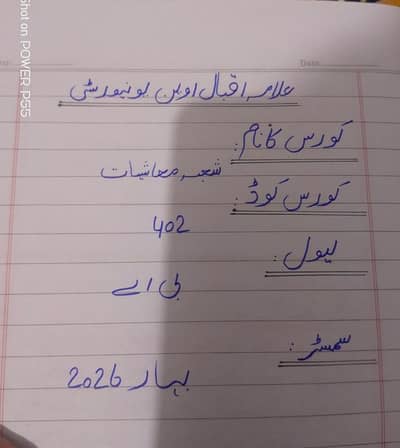 Shot on POWER P55
Date:
علامہ اقبال اوپن یونیورسٹی
کورس کا نام:
شعبہ معاشیات
کورس کوڈ:
402
لیول:
بی اے
سمسٹر:
بہار 2026